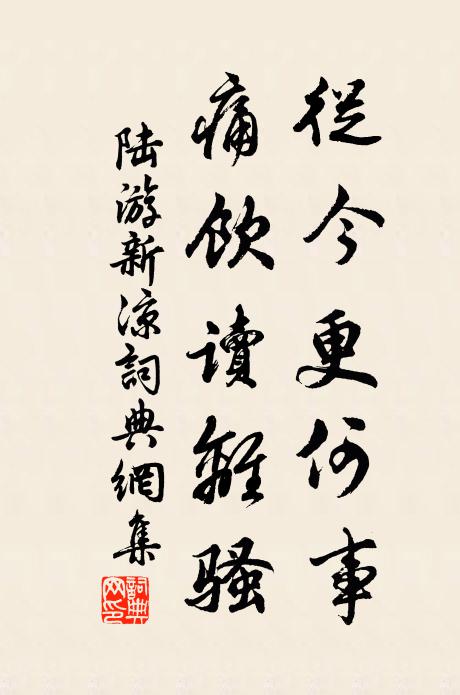 從今更何事
痛飲讀離騷
陆游新凉詞典網集
詞典
网印